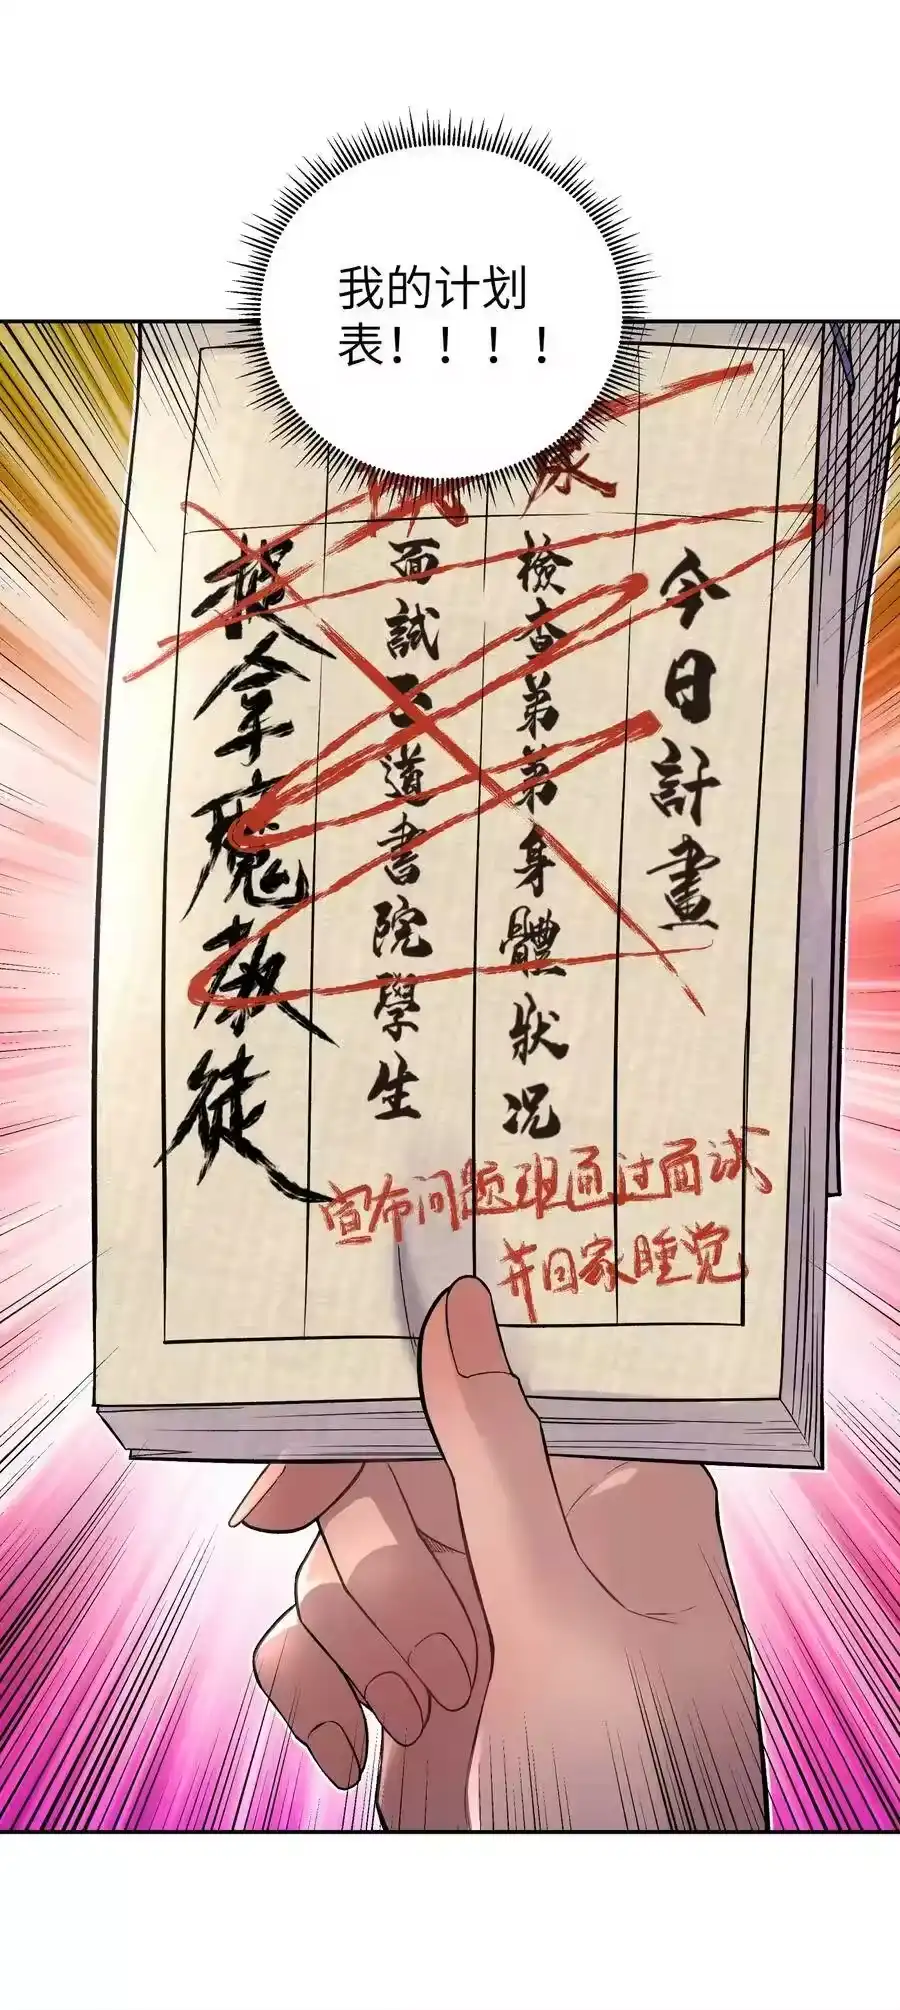 我的计划
表！！！！
今日計畫
檢查弟弟身體狀况
面試正道書院學生
捉拿魔教徒
宣布问题班通过面试
并回家睡觉